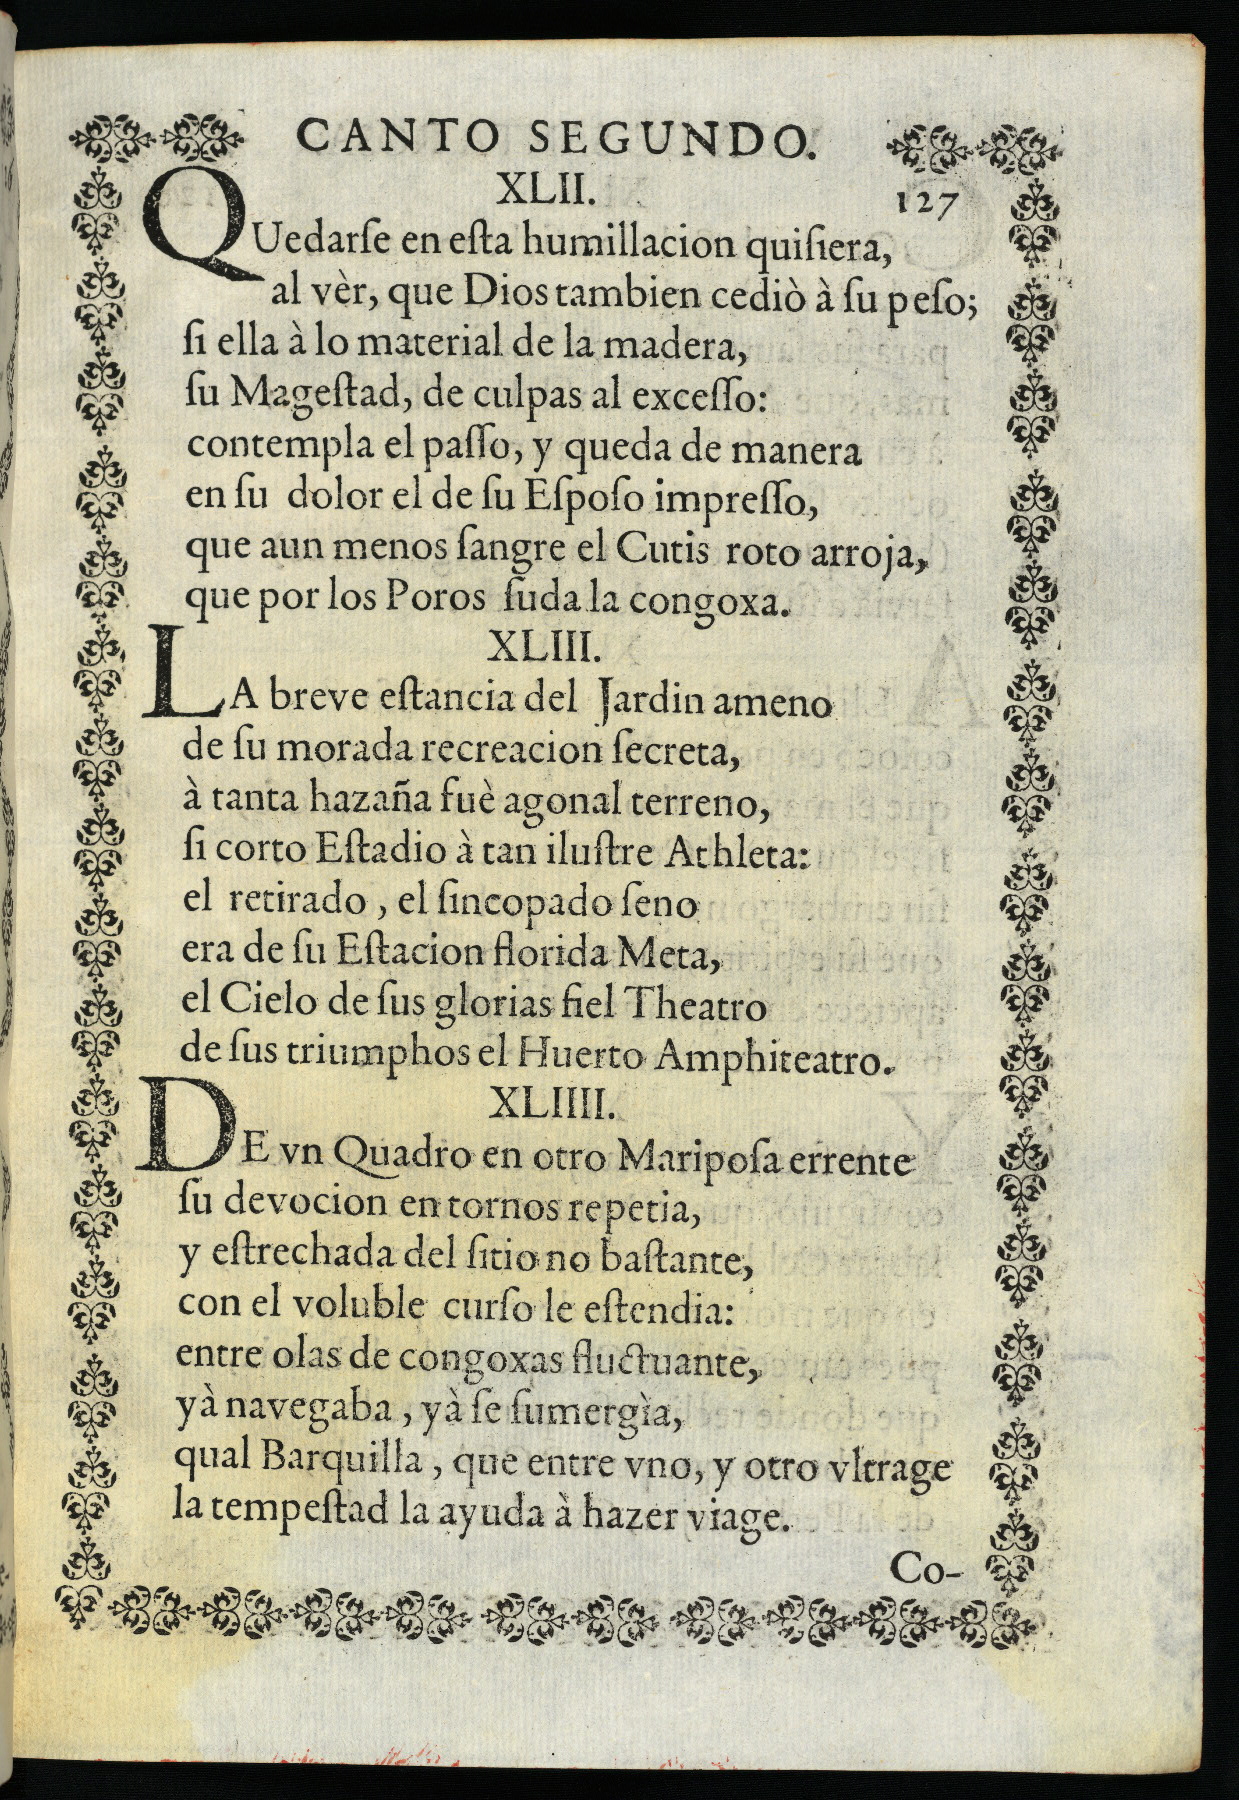 CANTO SEGUNDO.
XLII.
127
QUedarſe en eſta humillacion quiſiera,
al vèr, que Dios tambien cediò à ſu peſo;
ſi ella à lo material de la madera,
ſu Mageſtad, de culpas al exceſſo:
contempla el paſſo, y queda de manera
en ſu dolor el de ſu Eſpoſo impreſſo,
que aun menos ſangre el Cutis roto arroja,
que por los Poros ſuda la congoxa.
XLIII.
LA breve eſtancia del Jardin ameno
de ſu morada recreacion ſecreta,
à tanta hazaña fuè agonal terreno,
ſi corto Eſtadio à tan iluſtre Athleta:
el retirado, el ſincopado ſeno
era de ſu Eſtacion florida Meta,
el Cielo de ſus glorias fiel Theatro
de ſus triumphos el Huerto Amphiteatro.
XLIIII.
DE vn Quadro en otro Maripoſa errente
ſu devocion en tornos repetia,
y eſtrechada del ſitio no baſtante,
con el voluble curſo le eſtendia:
entre olas de congoxas fluctuante,
yà navegaba, yà ſe ſumergìa,
qual Barquilla, que entre vno, y otro vltrage
la tempeſtad la ayuda à hazer viage.
Co-